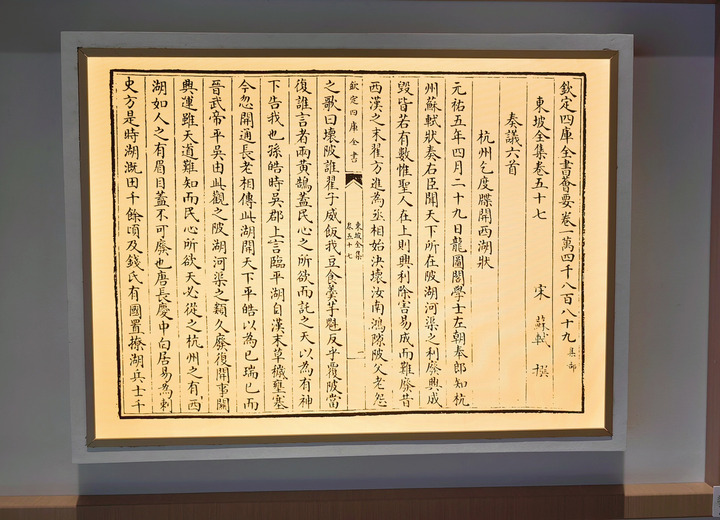 欽定四庫全書薈要卷一萬四千八百八十九 集部
東坡全集卷五十七
宋 蘇軾 撰
奏議六首
杭州乞度牒開西湖狀
元祐五年四月二十九日龍圖閣學士左朝奉郎知杭
州蘇軾狀奏右臣聞天下所在陂湖河渠之利廢興成
毀皆若有數惟聖人在上則興利除害易成而難廢昔
西漢之末翟方進為丞相始決壞汝南鴻隙陂父老怨
欽定四庫全書
東坡全集
卷五十七
一
之歌曰壞陂誰翟子威飯我豆食羹芋魁反乎覆陂當
復誰言者兩黃鵠蓋民心之所欲而託之天以為有神
下告我也孫皓時吳郡上言臨平湖自漢末草穢壅塞
今忽開通長老相傳此湖開天下平皓以為己瑞已而
晉武帝平吳由此觀之陂湖河渠之類久廢復開事關
興運雖天道難知而民心所欲天必從之杭州之有西
湖如人之有眉目蓋不可廢也唐長慶中白居易為刺
史方是時湖溉田千餘頃及錢氏有國置撩湖兵士千